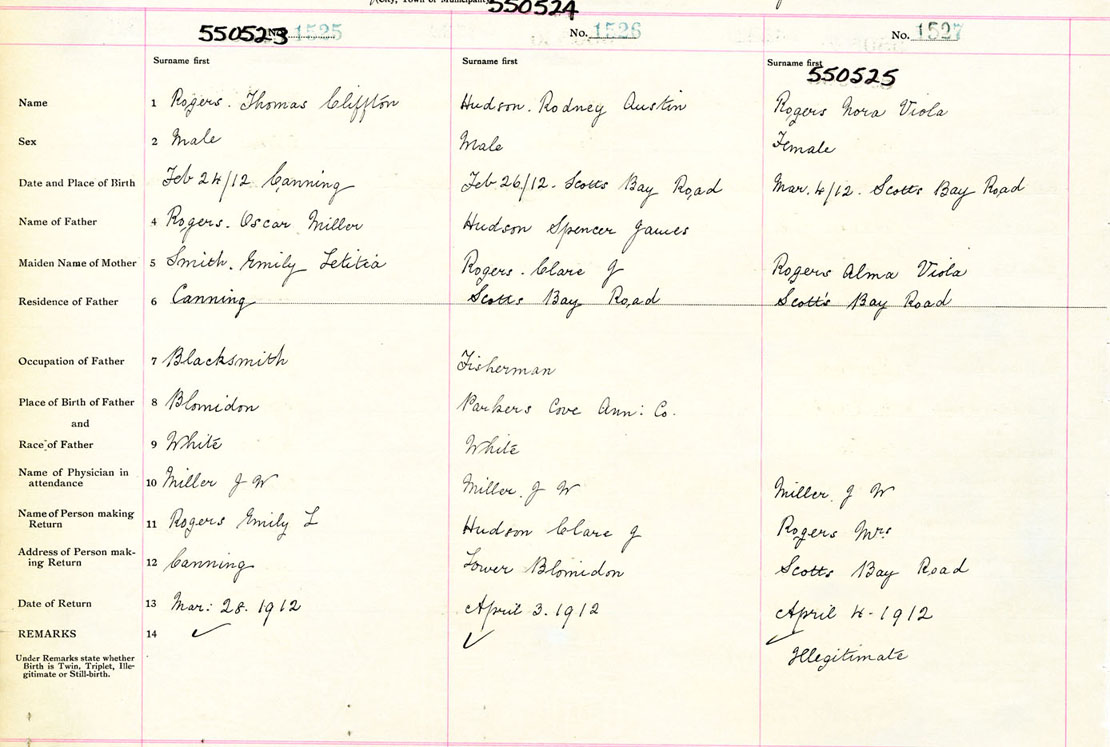 (City, Town or Municipality)
550524
550523 No. 1525
No. 1526
No. 1527
Surname first
Surname first
Surname first
550525
Name 1 Rogers. Thomas Cliffton Hudson. Rodney Austin Rogers Nora Viola
Sex 2 Male Male Female
Date and Place of Birth Feb 24/12 Canning Feb 26/12. Scotts Bay Road Mar. 4/12. Scotts Bay Road
Name of Father 4 Rogers. Oscar Miller Hudson Spencer James
Maiden Name of Mother 5 Smith. Emily Letitia Rogers. Clare J Rogers Alma Viola
Residence of Father 6 Canning Scotts Bay Road Scott's Bay Road
Occupation of Father 7 Blacksmith Fisherman
Place of Birth of Father 8 Blomidon Parkers Cove Ann: Co.
and
Race of Father 9 White White
Name of Physician in
attendance 10 Miller J W Miller. J W Miller. J W
Name of Person making
Return 11 Rogers Emily L Hudson Clare J Rogers Mrs
Address of Person mak-
ing Return 12 Canning Lower Blomidon Scotts Bay Road
Date of Return 13 Mar: 28. 1912 April 3. 1912 April 4-1912
REMARKS 14 ✓ ✓ ✓
Under Remarks state whether
Birth is Twin, Triplet, Ille-
gitimate or Still-birth.
Illegitimate